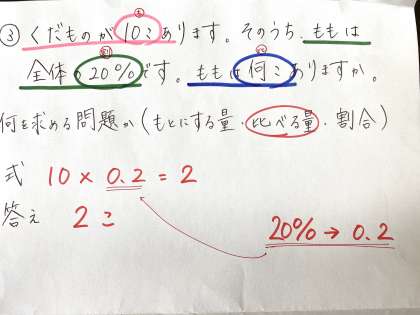 ③ くだものが10こあります。そのうち、ももは
全体の20%です。ももは何こありますか。
何を求める問題か(もとにする量・比べる量・割合)
式 10 × 0.2 = 2
答え 2こ
20% → 0.2